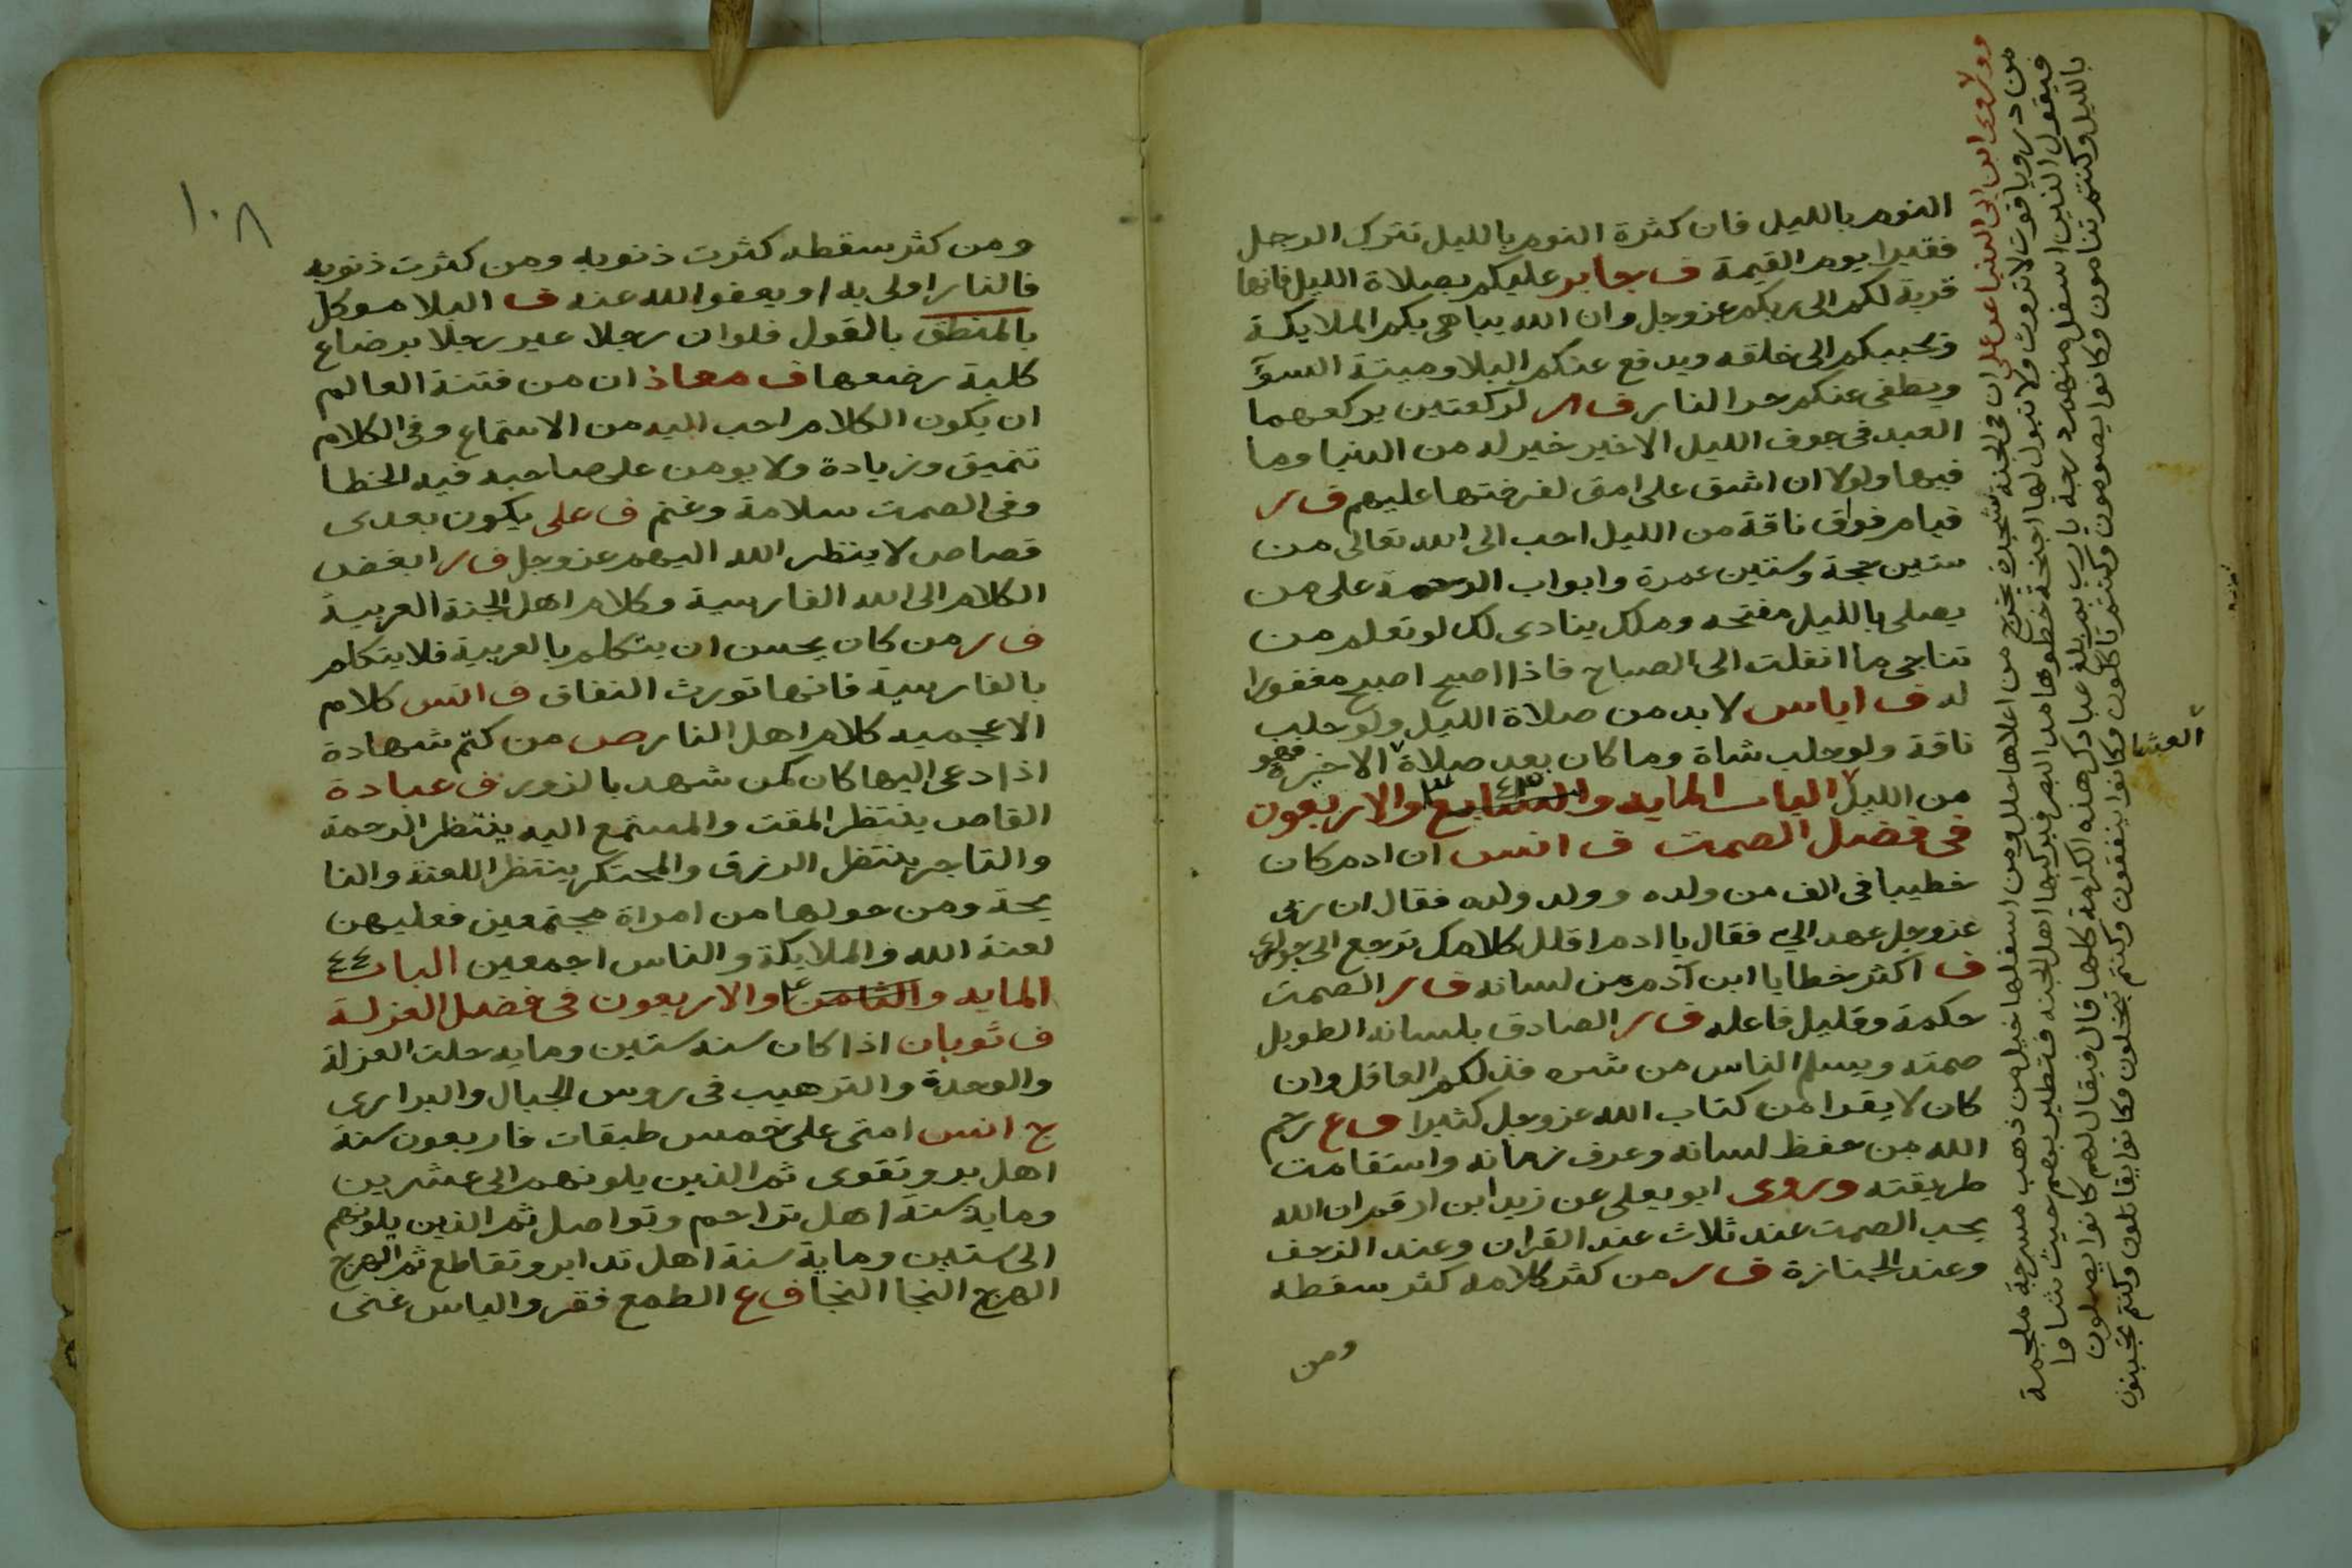 النوم بالليل فان كثرة النوم بالليل تترك الرجل
فقيرا يوم القيمة ف جابر عليكم بصلاة الليل فانها
قربة لكم الى ربكم عزوجل وان الله يباهى بكم الملايكة
وتحببكم الى خلقه ويدفع عنكم البلا وميتة السوء
ويطفى عنكم حر النار ف ر لركعتين يركعهما
العبد فى جوف الليل الاخير خير له من الدنيا وما
فيها ولولا ان اشق على امتى لفرضتها عليهم ف ر
قيام فواق ناقة من الليل احب الى الله تعالى من
ستين حجة وستين عمرة وابواب الرحمة على من
يصلى بالليل مفتحه وملك ينادى لك لو تعلم من
تناجى ما انفلت الى الصباح فاذا اصبح اصبح مغفورا
له ف اياس لا بد من صلاة الليل ولو حلب
ناقة ولو حلب شاة وما كان بعد صلاة الاخيرة فهو
من الليل الباب المايه والسابع والاربعون
فى فضل الصمت ف انس ان ادم كان
خطيبا فى الف من ولده وولد ولده فقال ان ربى
عزوجل عهد الى فقال يا ادم اقلل كلامك ترجع الى جوارى
ف اكثر خطايا ابن آدم من لسانه ف ر الصمت
حكمة وقليل فاعله ف ر الصادق بلسانه الطويل
صمته ويسلم الناس من شره فذلكم العاقل وان
كان لا يقرا من كتاب الله عزوجل كثيرا ف ع رحم
الله من حفظ لسانه وعرف زمانه واستقامت
طريقته وروى ابو يعلى عن زيد ابن ارقم ان الله
يحب الصمت عند ثلاث عند القران وعند الزحف
وعند الجنازة ف ر من كثر كلامه كثر سقطه
ومن
وروى ابن ابى الدنيا عن على ان فى الجنة شجرة يخرج من اعلاها حلل ومن اسفلها خيل من ذهب مسرجة ملجمة
من در وياقوت لا تروث ولا تبول لها اجنحة خطوها مد البصر فيركبها اهل الجنه فتطير بهم حيث شاوا
فيقول الذين اسفل منهم درجة يا رب بم بلغ عبادك هذه الكرامة كلها قال فيقال لهم كانوا يصلون
بالليل وكنتم تنامون وكانوا يصومون وكنتم تاكلون وكانوا ينفقون وكنتم تبخلون وكانوا يقاتلون وكنتم تجبنون
العشا
١٠٨
ومن كثر سقطه كثرت ذنوبه ومن كثرت ذنوبه
فالنار اولى به او يعفو الله عنه ف البلا موكل
بالمنطق بالقول فلو ان رجلا عير رجلا برضاع
كلبة رضعها ف معاذ ان من فتنة العالم
ان يكون الكلام احب اليه من الاستماع وفى الكلام
تنميق وزيادة ولا يومن على صاحبه فيه الخطا
وفى الصمت سلامة وغنم ف على يكون بعدى
قصاص لا ينظر الله اليهم عزوجل ف ر ابغض
الكلام الى الله الفارسية وكلام اهل الجنة العربية
ف ر من كان يحسن ان يتكلم بالعربية فلا يتكلم
بالفارسية فانها تورث النفاق ف انس كلام
الاعجميه كلام اهل النار ص من كتم شهادة
اذا دعى اليها كان كمن شهد بالزور ف عبادة
القاص ينتظر المقت والمستمع اليه ينتظر الرحمة
والتاجر ينتظر الرزق والمحتكر ينتظر اللعنة والنا
يحة ومن حولها من امراة مجتمعين فعليهن
لعنة الله والملايكة والناس اجمعين الباب ٤٤
المايه والثامن والاربعون فى فضل العزلة
ف ثوبان اذا كان سنه ستين ومايه حلت العزلة
والوحدة والترهيب فى روس الجبال والبرارى
ج انس امتى على خمس طبقات فاربعون سنة
اهل بر وتقوى ثم الذين يلونهم الى عشرين
وماية سنة اهل تراحم وتواصل ثم الذين يلونهم
الى ستين وماية سنة اهل تدابر وتقاطع ثم الهرج
الهرج النجا النجا ف ع الطمع فقر والياس غنى